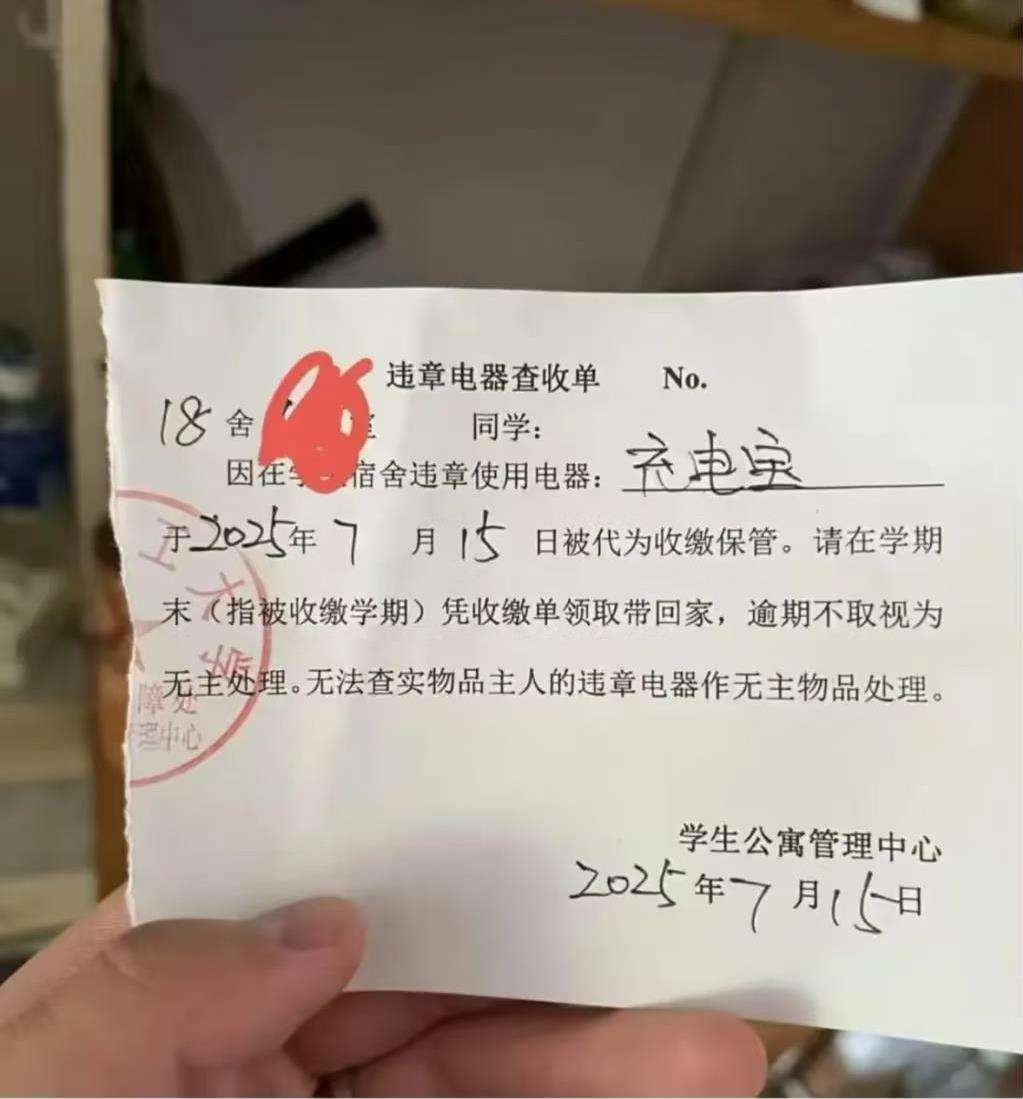 违章电器查收单 No.
18舍 室 同学：
因在学 宿舍违章使用电器：充电宝
于2025年7月15日被代为收缴保管。请在学期
末（指被收缴学期）凭收缴单领取带回家，逾期不取视为
无主处理。无法查实物品主人的违章电器作无主物品处理。
工大学
障处
管理中心
学生公寓管理中心
2025年7月15日